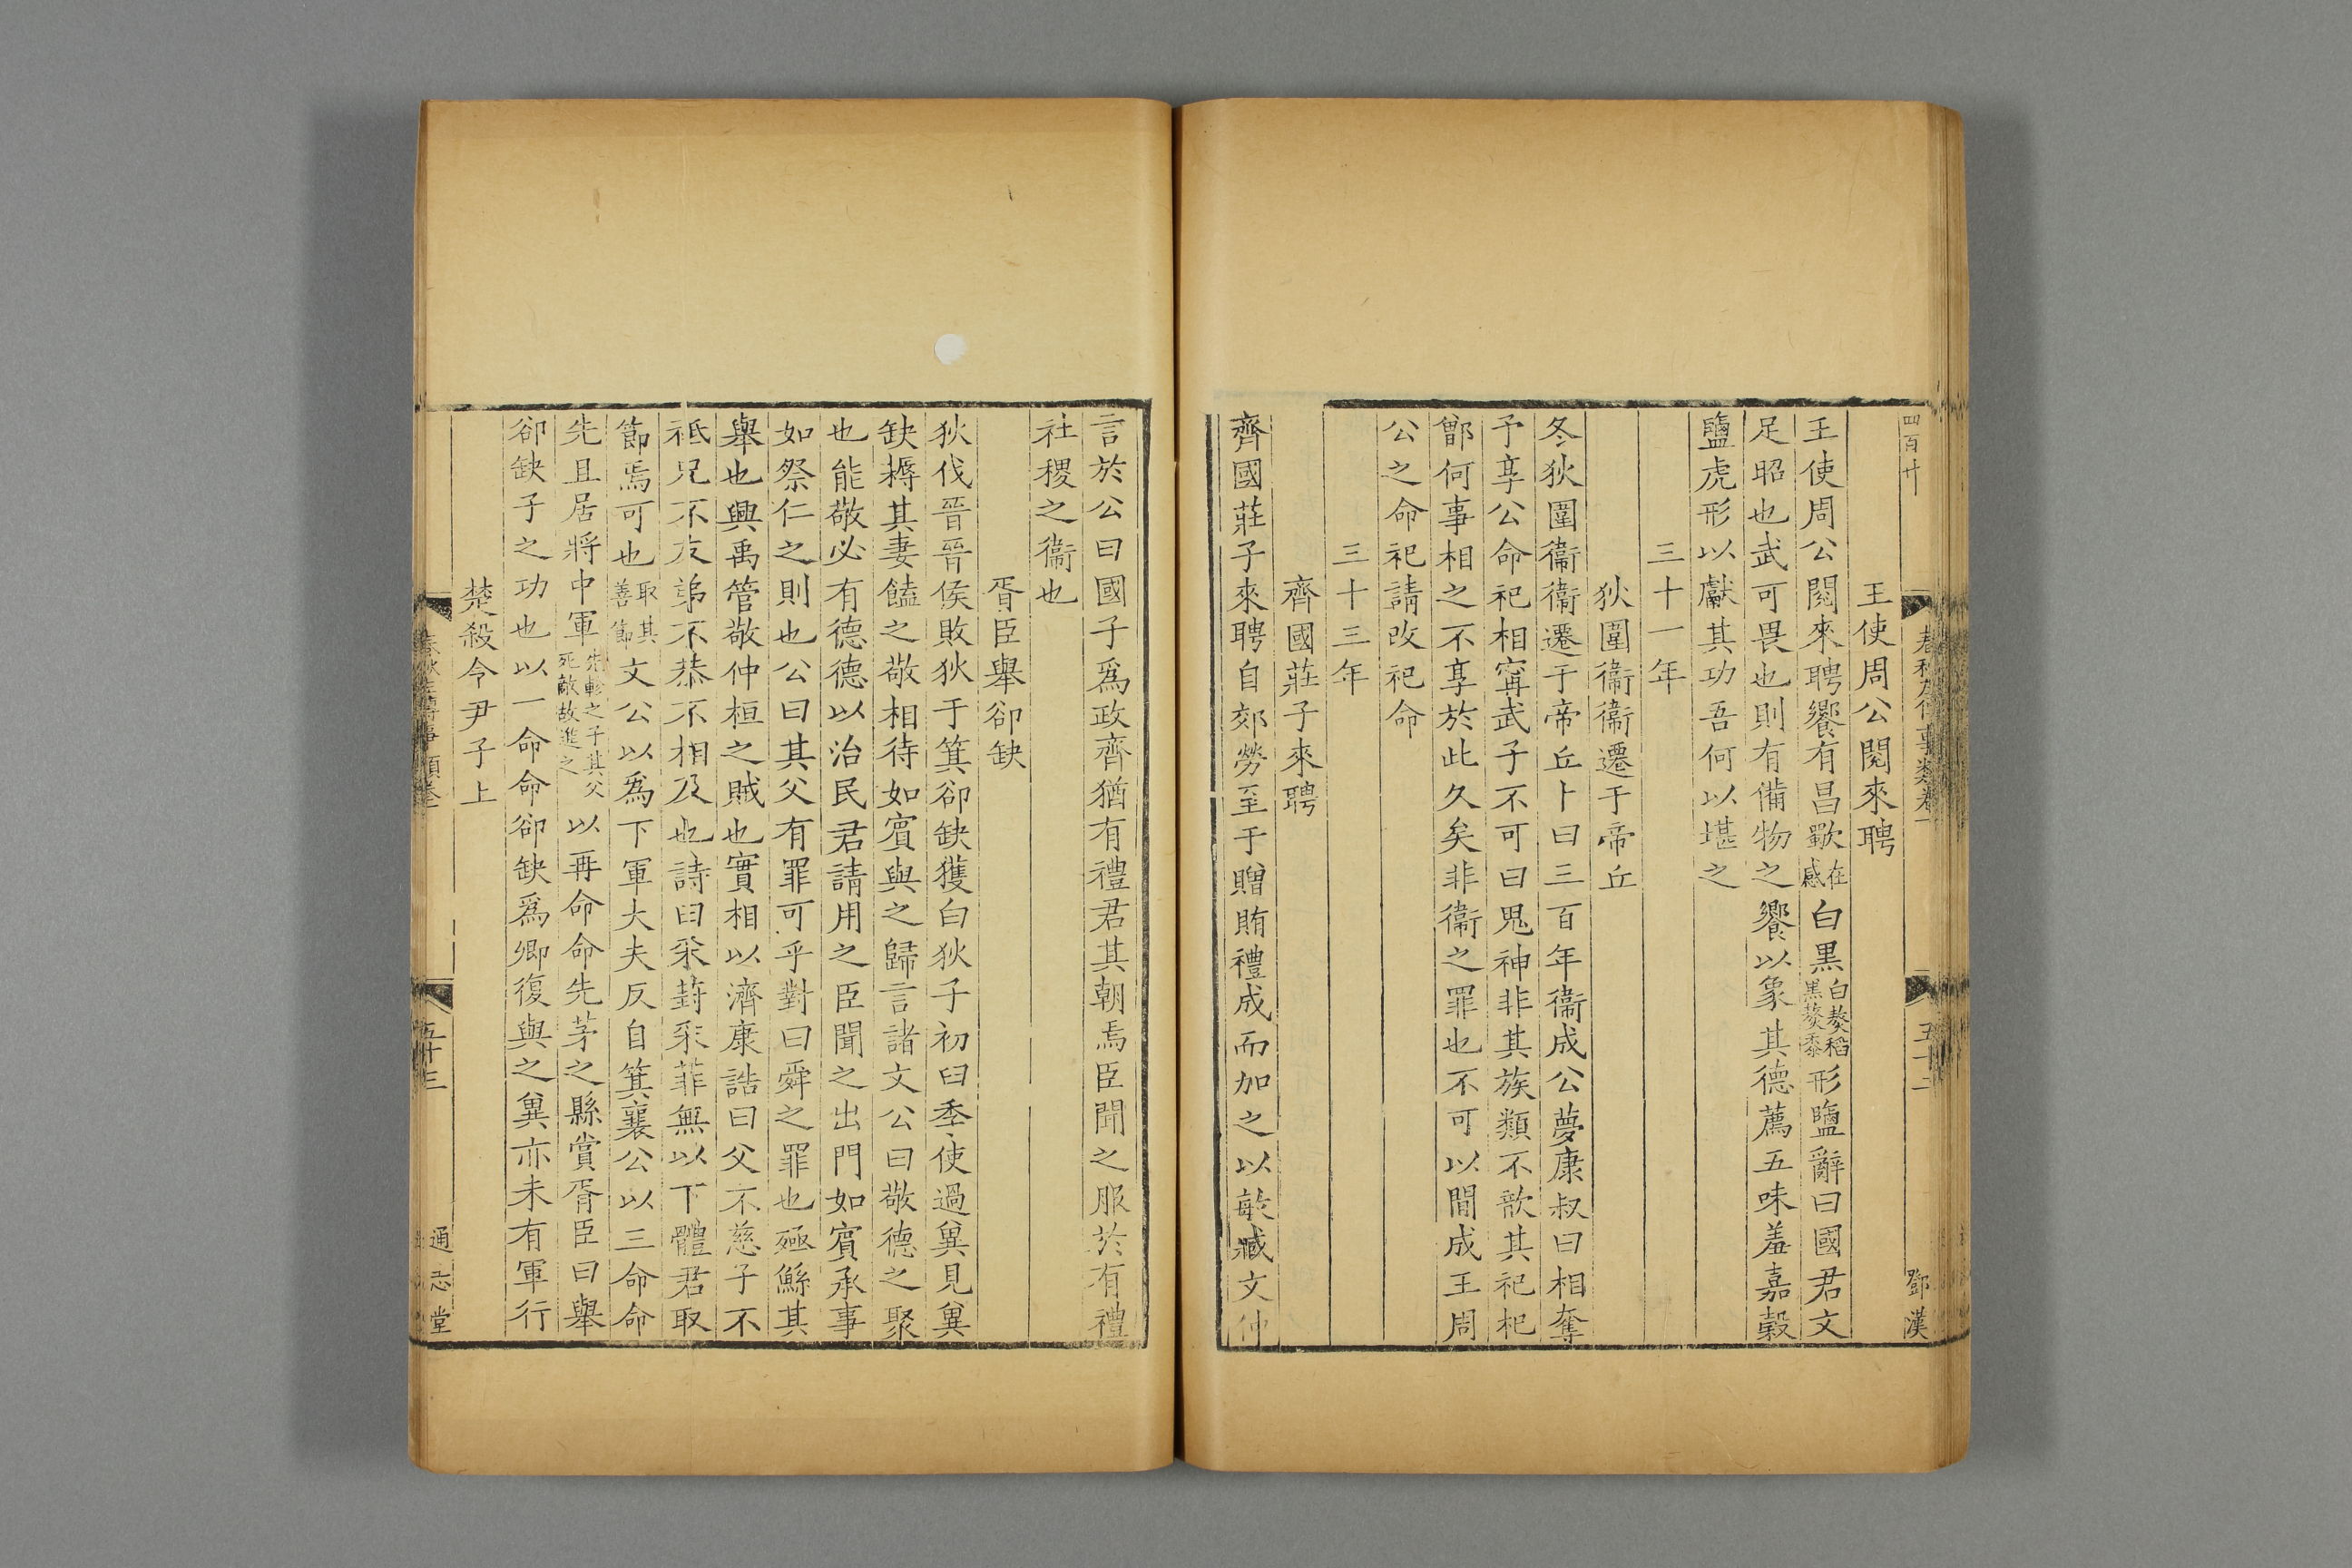 四百廿
春秋左傳事類卷一
五十二
鄧漢
王使周公閱來聘
王使周公閱來聘饗有昌歜在感白黑白熬稻黑熬黍形鹽辭曰國君文
足昭也武可畏也則有備物之饗以象其德薦五味羞嘉穀
鹽虎形以獻其功吾何以堪之
三十一年
狄圍衞衞遷于帝丘
冬狄圍衞衞遷于帝丘卜曰三百年衞成公夢康叔曰相奪
予享公命祀相甯武子不可曰鬼神非其族類不歆其祀杞
鄫何事相之不享於此久矣非衞之罪也不可以間成王周
公之命祀請改祀命
三十三年
齊國莊子來聘
齊國莊子來聘自郊勞至于贈賄禮成而加之以敏臧文仲
言於公曰國子爲政齊猶有禮君其朝焉臣聞之服於有禮
社稷之衞也
胥臣舉郤缺
狄伐晉晉侯敗狄于箕郤缺獲白狄子初臼季使過兾見兾
缺耨其妻饁之敬相待如賓與之歸言諸文公曰敬德之聚
也能敬必有德德以治民君請用之臣聞之出門如賓承事
如祭仁之則也公曰其父有罪可乎對曰舜之罪也殛鯀其
舉也興禹管敬仲桓之賊也實相以濟康誥曰父不慈子不
祗兄不友弟不恭不相及也詩曰采葑采菲無以下體君取
節焉可也取其善節文公以爲下軍大夫反自箕襄公以三命命
先且居將中軍先軫之子其父死敵故進之以再命命先茅之縣賞胥臣曰舉
郤缺子之功也以一命命郤缺爲卿復與之兾亦未有軍行
楚殺令尹子上
春秋左傳事類卷一
五十三
通志堂